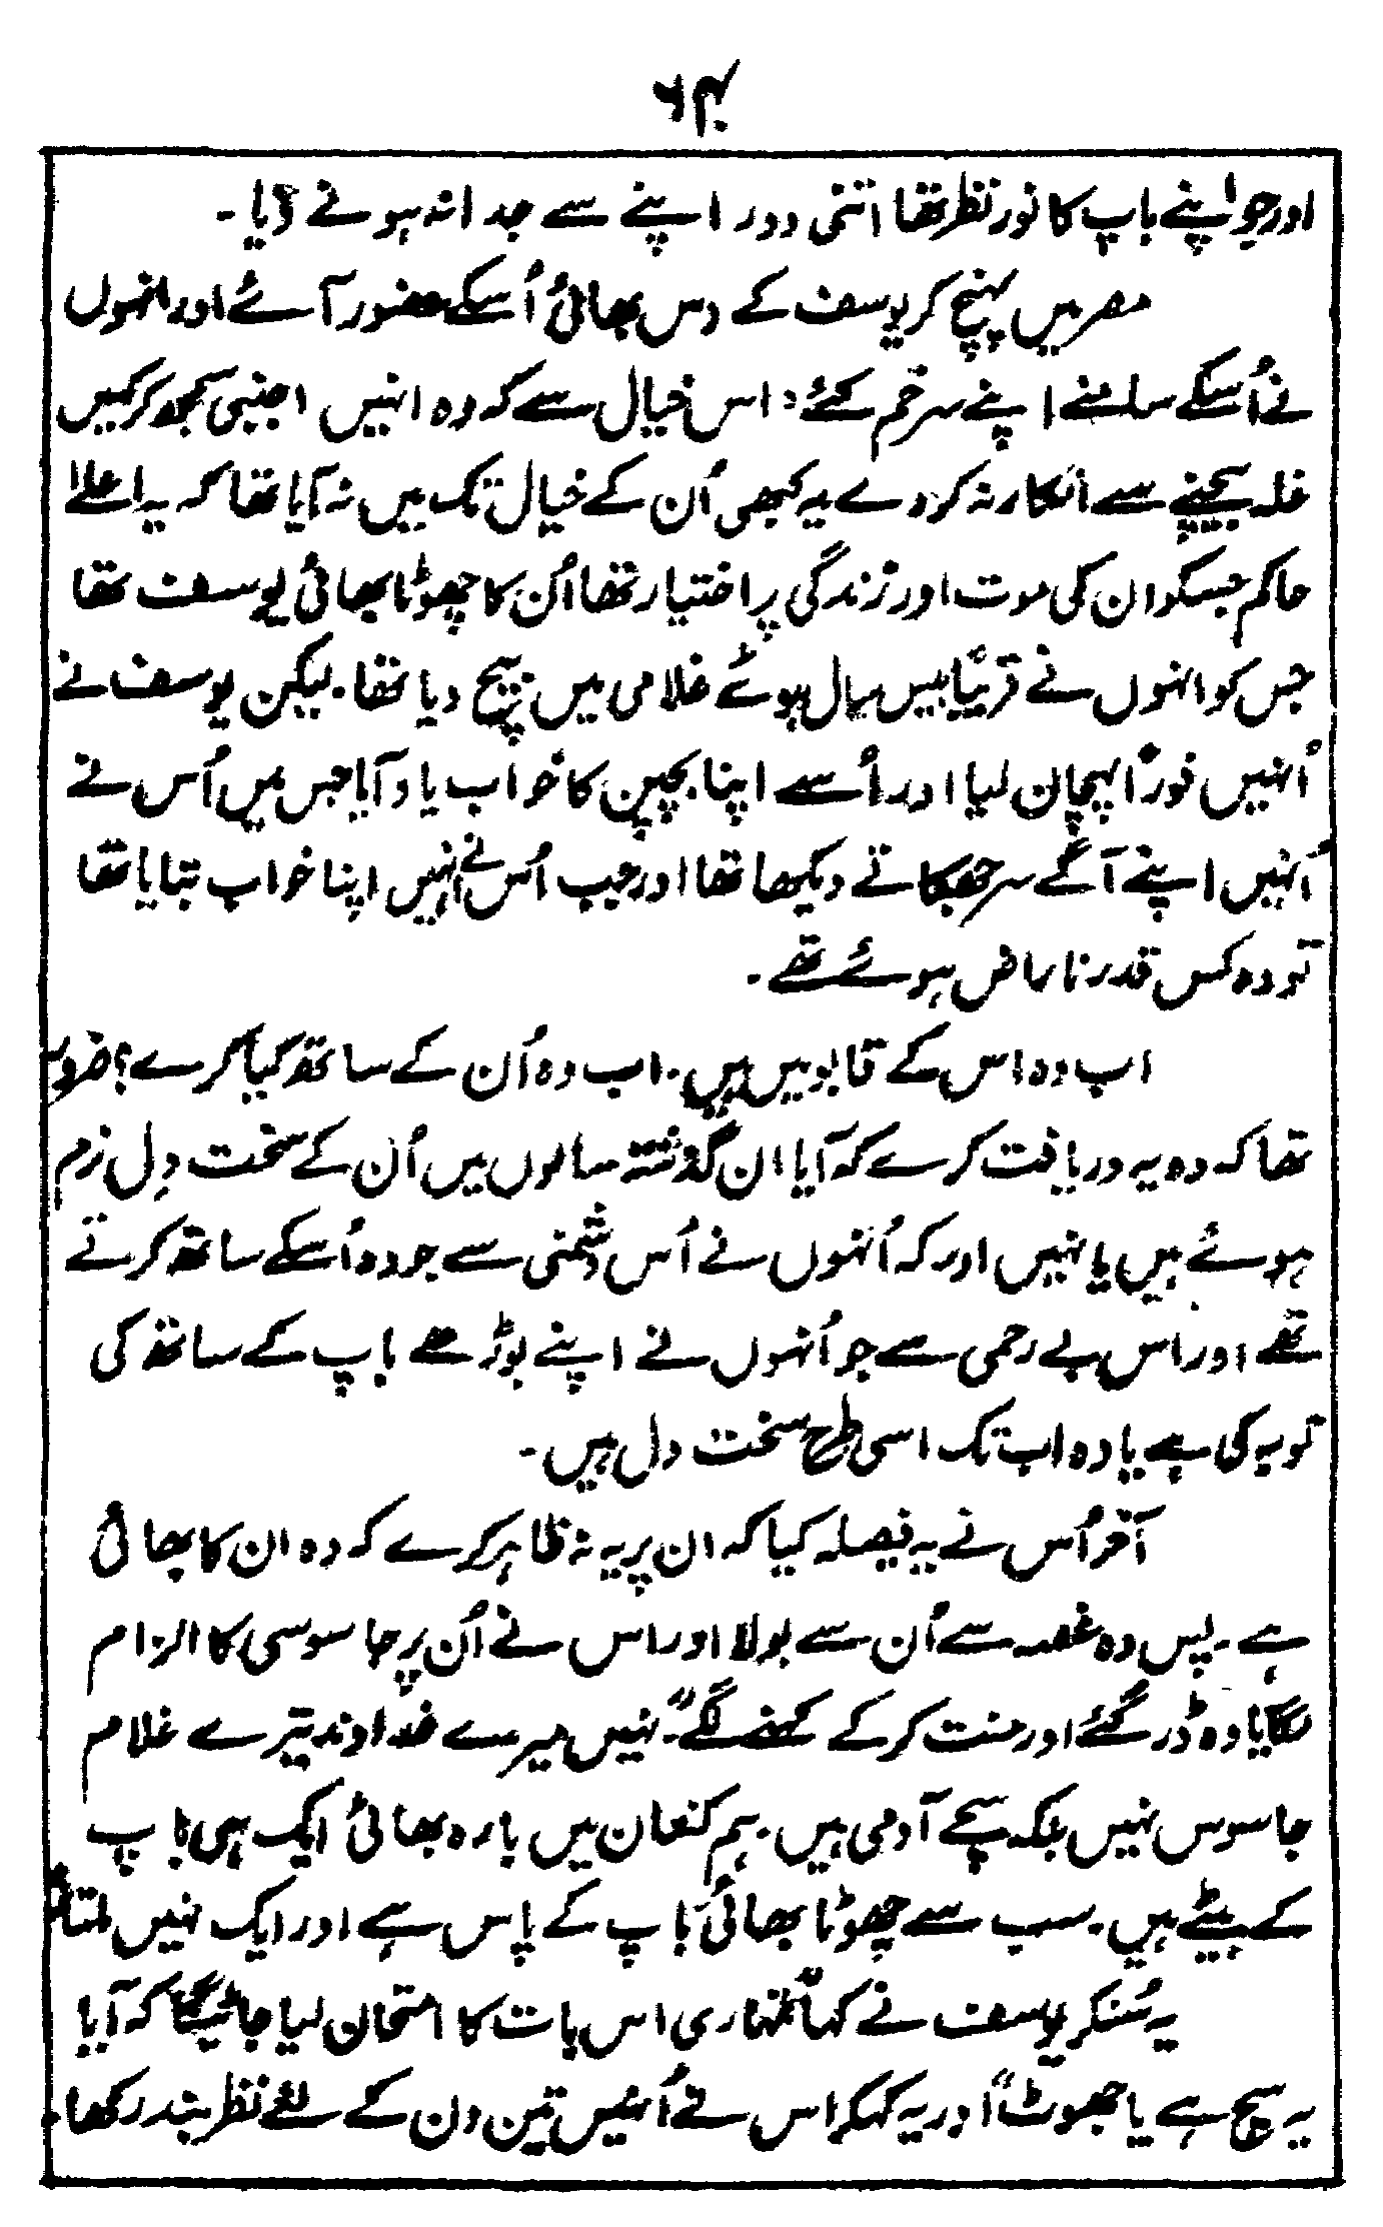 ۶۴
اور جو اپنے باپ کا نور نظر تھا اتنی دور اپنے سے جدا نہ ہونے دیا۔
مصر میں پہنچ کر یوسف کے دس بھائی اُسکے حضور آئے اور انہوں
نے اُسکے سامنے اپنے سر خم کئے: اس خیال سے کہ وہ انہیں اجنبی سمجھ کر کہیں
غلہ بیچنے سے انکار نہ کر دے یہ کبھی اُن کے خیال تک میں نہ آیا تھا کہ یہ اعلےٰ
حاکم جسکو ان کی موت اور زندگی پر اختیار تھا اُن کا چھوٹا بھائی یوسف تھا
جس کو انہوں نے قریباً بیس سال ہوئے غلامی میں بیچ دیا تھا۔ لیکن یوسف نے
اُنہیں فوراً پہچان لیا اور اُسے اپنا بچپن کا خواب یاد آیا جس میں اُس نے
اُنہیں اپنے آگے سر جھکاتے دیکھا تھا اور جب اُس نے اُنہیں اپنا خواب بتایا تھا
تو وہ کس قدر ناراض ہوئے تھے۔
اب وہ اس کے قابو میں ہیں۔ اب وہ اُن کے ساتھ کیا کرے؟ ضرور
تھا کہ وہ یہ دریافت کرے کہ آیا ان گذشتہ سالوں میں اُن کے سخت دِل نرم
ہوئے ہیں یا نہیں اور کہ اُنہوں نے اُس دشمنی سے جو وہ اُسکے ساتھ کرتے
تھے اور اس بے رحمی سے جو اُنہوں نے اپنے بوڑھے باپ کے ساتھ کی
توبہ کی ہے یا وہ اب تک اسی طرح سخت دل ہیں۔
آخر اُس نے یہ فیصلہ کیا کہ ان پر یہ نہ ظاہر کرے کہ وہ ان کا بھائی
ہے۔ پس وہ غصہ سے اُن سے بولا اور اس نے اُن پر جاسوسی کا الزام
لگایا وہ ڈر گئے اور منت کر کے کہنے لگے۔ "نہیں میرے خداوند تیرے غلام
جاسوس نہیں بلکہ سچے آدمی ہیں۔ ہم کنعان میں بارہ بھائی ایک ہی باپ
کے بیٹے ہیں۔ سب سے چھوٹا بھائی باپ کے پاس ہے اور ایک نہیں ملتا"
یہ سُنکر یوسف نے کہا "تمہاری اس بات کا امتحان لیا جائیگا کہ آیا
یہ سچ ہے یا جھوٹ" اور یہ کہکر اس نے اُنہیں تین دن کے لئے نظر بند رکھا۔